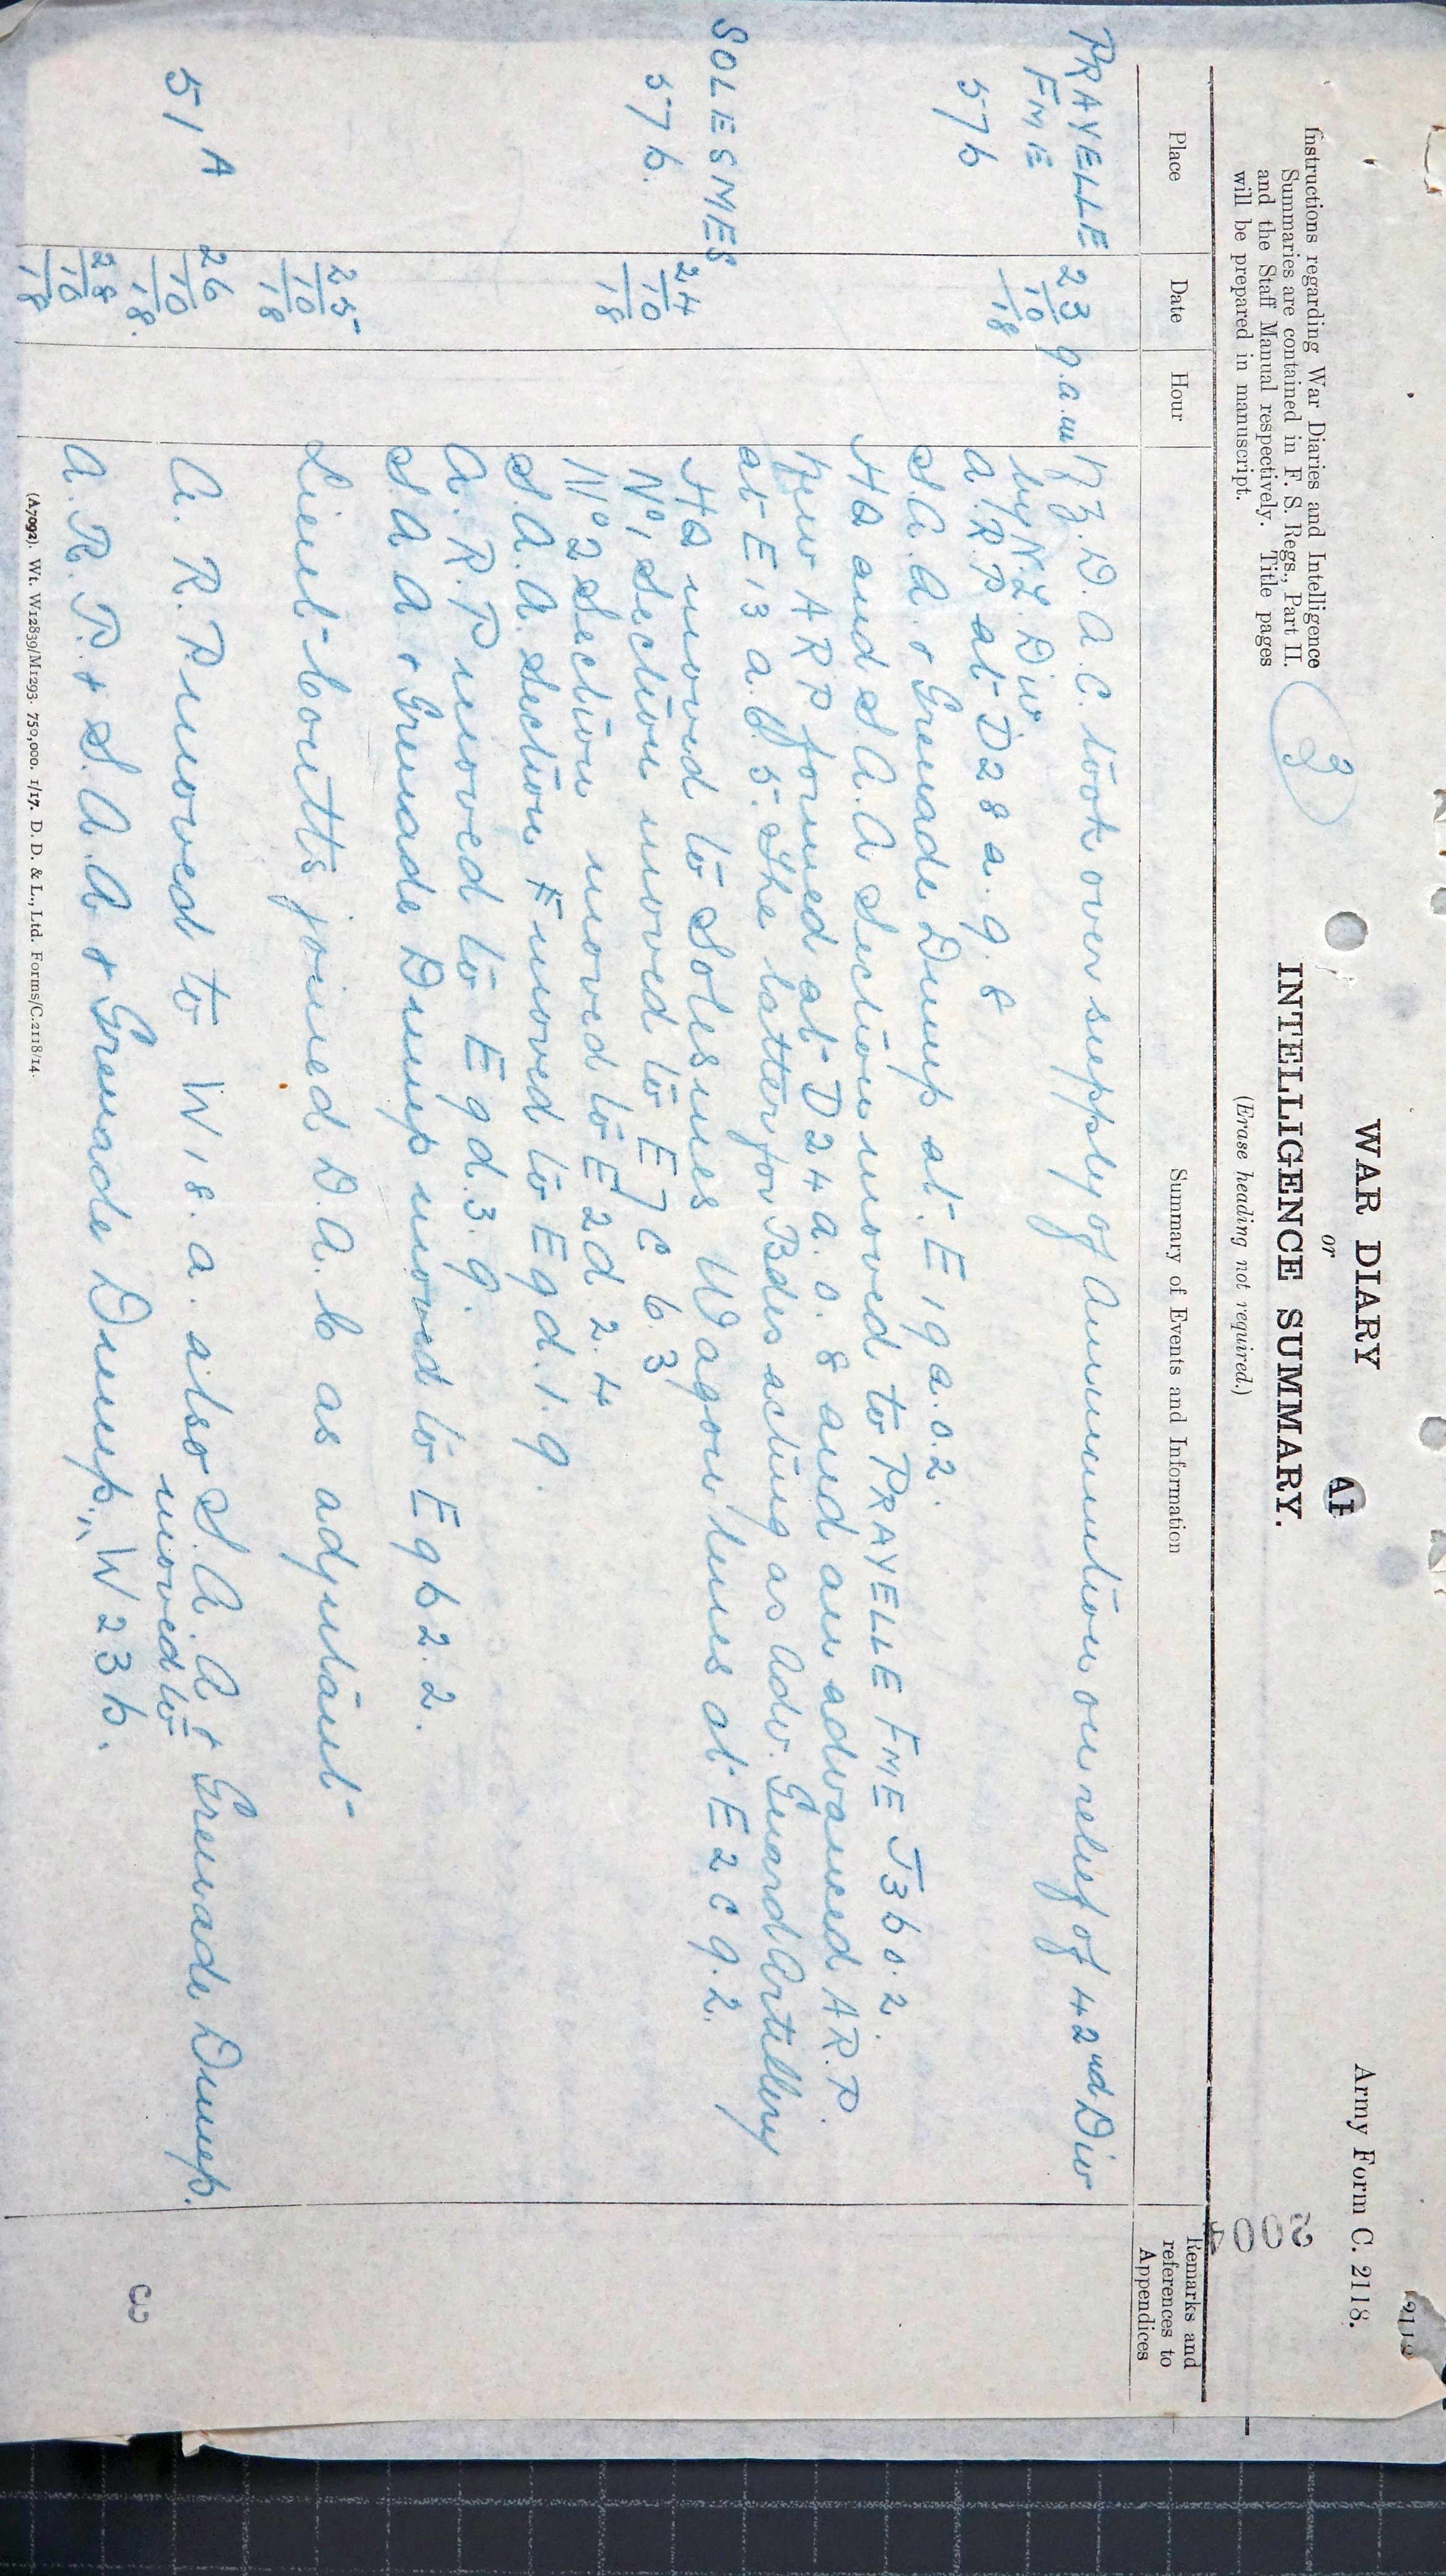 Army Form C. 2118.
WAR DIARY
or
INTELLIGENCE SUMMARY.
(Erase heading not required.)
Instructions regarding War Diaries and Intelligence
Summaries are contained in F. S. Regs., Part II.
and the Staff Manual respectively. Title pages
will be prepared in manuscript.
3
2004
Place Date Hour Summary of Events and Information Remarks and references to Appendices
PRAYELLE 23 9 a.m N.Z.D.A.C. took over supply of Ammunition on relief of 42nd Div
FME 10 by N.Z. Div
57b 18 A.R.P at D28a.9.8
S.A.A. & Grenade Dump at E19a.0.2.
HQ and S.A.A Section moved to PRAYELLE FME J3b0.2.
New ARP formed at D24a.0.8 and an advanced A.R.P.
at E13a.b.5. The latter for Bdes acting as Adv. Guard Artillery
SOLESMES 24 HQ moved to Solesmes Wagon lines at E2c9.2.
57b. 10 No 1 Section moved to E7C63
18 No 2 Section moved to E2d2.4
S.A.A. Section moved to E9d.1.9.
A.R.P moved to E9d.3.9.
S.A.A. & Grenade Dump moved to E9b2.2.
25 10 18 Lieut Coutts joined D.A.C as adjutant
51A 26 10 18. A.R.P moved to W18.a. also S.A.A & Grenade Dump.
moved to
28 10 18 A.R.P. & S.A.A & Grenade Dump W23b.
3
(A7092). Wt. W12839/M1293. 750,000. 1/17. D. D. & L., Ltd. Forms/C.2118/14.